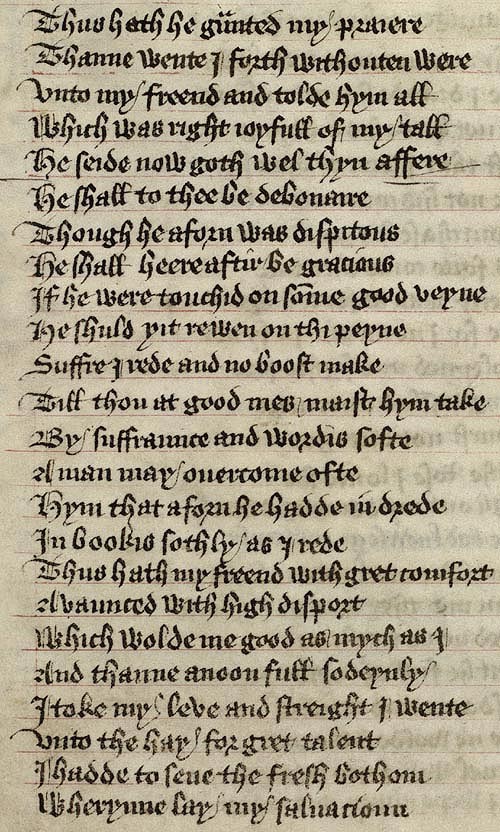 Thus hath he gũnted my praiere
Thanne wente I forth withouten were
vnto my freend and tolde hym all
Which was right ioyfull of my tall
He seide now goth wel thyn affere
He shall to thee be debonaire
Though he aforn was dispitous
He shall heere aftir be gracious
If he were touchid on som̄e good veyne
He shuld yit rewen on thi peyne
Suffre I rede and no boost make
Till thou at good mes maist hym take
By suffraunce and wordis softe
A man may ouercome ofte
Hym that aforn he hadde in drede
In bookis sothly as I rede
Thus hath my freend with gret comfort
Avaunced with high disport
Which wolde me good as mych as I
And thanne anoon full sodeynly
I toke my leve and streight I wente
vnto the hay for gret talent
I hadde to seue the fresh bothom
Wherynne lay my saluacioun